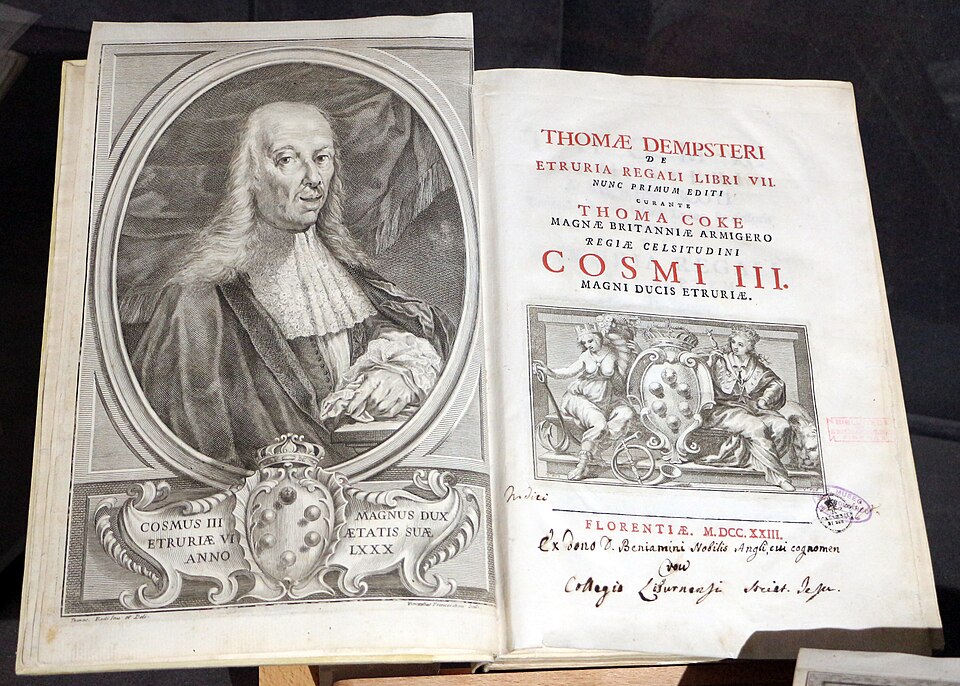 COSMUS III
ETRURIÆ VI
ANNO
MAGNUS DUX
ÆTATIS SUÆ
LXXX
THOMÆ DEMPSTERI
DE
ETRURIA REGALI LIBRI VII.
NUNC PRIMUM EDITI
CURANTE
THOMA COKE
MAGNÆ BRITANNIÆ ARMIGERO
REGIÆ CELSITUDINI
COSMI III.
MAGNI DUCIS ETRURIÆ.
FLORENTIÆ. M.DCC.XXIII.
Ex dono D. Beniamini Nobilis Angli, cui cognomen
Collegio Liburnensi Societ. Jesu.